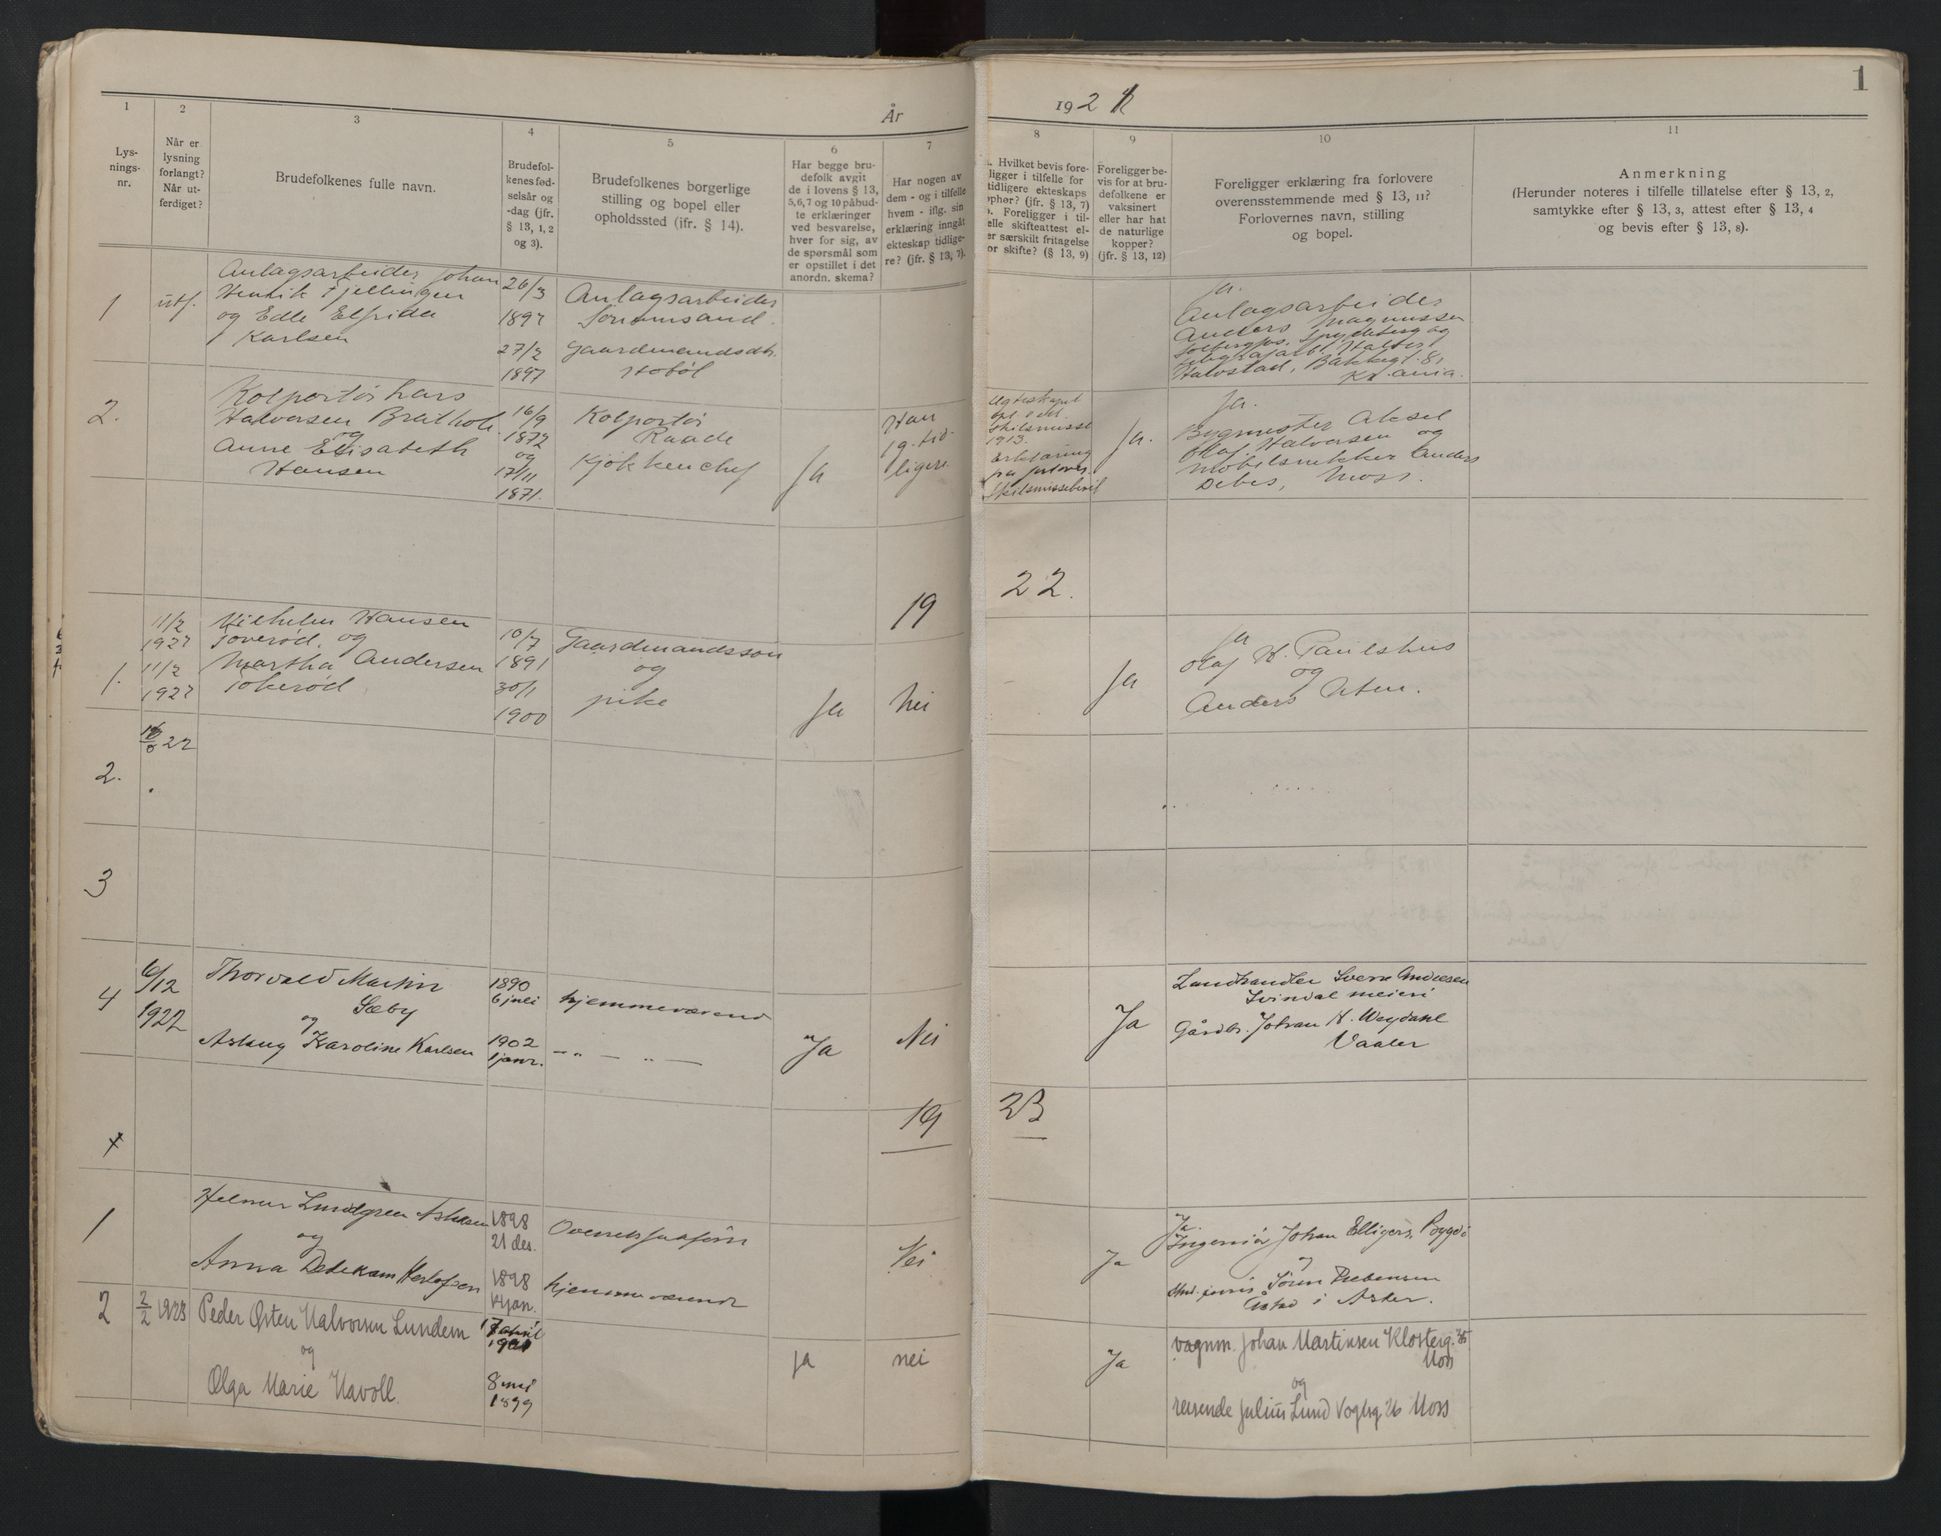 1
År 192
1
Lys-
nings-
nr.
2
Når er
lysning
forlangt?
Når ut-
ferdiget?
3
Brudefolkenes fulle navn.
4
Brudefol-
kenes fød-
selsår og
-dag (jfr.
§ 13, 1, 2
og 3).
5
Brudefolkenes borgerlige
stilling og bopel eller
opholdssted (ifr. § 14).
6
Har begge bru-
defolk avgit
de i lovens § 13,
5,6,7 og 10 påbud-
te erklæringer
ved besvarelse,
hver for sig, av
de spørsmål som
er opstillet i det
anordn. skema?
7
Har nogen av
dem - og i tilfelle
hvem - iflg. sin
erklæring inngåt
ekteskap tidlige-
re? (jfr. § 13, 7).
8
Hvilket bevis fore-
ligger i tilfelle for
tidligere ekteskaps
ophør? (jfr. § 13, 7)
Foreligger i til-
felle skifteattest el-
er særskilt fritagelse
or skifte? (§ 13, 9)
9
Foreligger be-
vis for at bru-
defolkene er
vaksinert
eller har hat
de naturlige
kopper?
(jfr. § 13, 12)
10
Foreligger erklæring fra forlovere
overensstemmende med § 13, 11?
Forlovernes navn, stilling
og bopel.
11
Anmerkning
(Herunder noteres i tilfelle tillatelse efter § 13, 2,
samtykke efter § 13, 3, attest efter § 13, 4
og bevis efter § 13, 8).
1
utf.
Anlagsarbeider Johan
Henrik Fjellingen
og Edle Elfrida
Karlsen
26/3
1897
27/2
1897
Anlagsarbeider
Sonsand.
Gaardmandsdtr.
Hobøl
Ja.
Anlagsarbeider
Anders Magnussen
Spydeberg og
Halvstad, Bakkegt. 8,
Kr.ania.
2.
Kolportør Lars
Halvorsen Bratholt
og
Anne Elisabeth
Hansen
16/9
1872
og
17/11
1871.
Kolportør
Raade
Kjøkkenchef
Ja
Han
tid-
ligere
Skilsmisse
1913.
Erklæring
Skilsmissebevil
Ja.
Ja.
Bygmester Aksel
Olaf Halvorsen og
Møbelsnekker Anders
Debes, Moss.
19 22.
1.
11/2
1922
11/2
1922
Vilhelm Hansen
Toverød, og
Martha Andersen
Tokerød
10/7
1891
30/1
1900
Gaardmandssøn
og
pike
Ja
Nei
Ja
Ja
Olaf H. Paulshus
og
Anders
2.
22
3
4
6/12
1922
Thorvald Martin
Sæby
og
Aslaug Karoline Karlsen
1890
6 juli
1902
1 janr.
hjemmeværende
— „ — „ —
Ja
Nei
Ja
Landhandler Sverre Andresen
Svindal meieri
Gårdbr. Johan H. Weydahl
Vaaler
19 23
1
Helmer Lundgren
og
Anna Dedekam
1898
21 des.
1898
jan.
hjemmeværende
Nei
Ja
Ja.
Ingeniør Johan Elligers, Bygdö
og
Stud. juris Sören Prebensen
i Asker.
2
2/2 1923
Peder Østen Halvorsen Lundem
og
Olga Marie Havoll.
17
april
8 mai
1899
ja
nei
Ja
vognm. Johan Martinsen Klosterg. 35
Moss
og
reisende Julius Lund Voglsg. 26 Moss